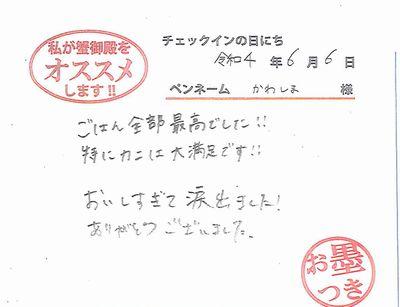 私が蟹御殿を
オススメ
します!!
チェックインの日にち
令和4年6月6日
ペンネーム かわしま 様
ごはん全部最高でした!!
特にカニは大満足です!!
おいしすぎて涙出ました!
ありがとうございました。
お墨
つき